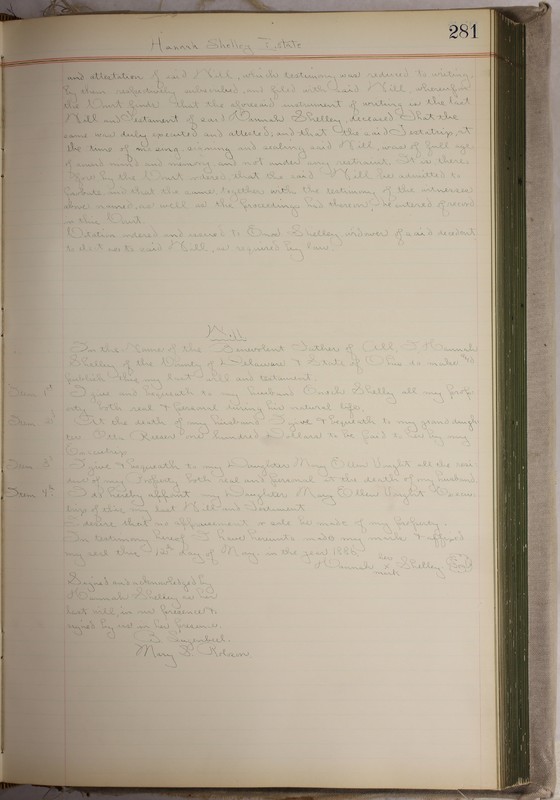 281
Hannah Shelley Estate
and attestation of said Will, which testimony was reduced to writing,
by them respectively subscribed, and filed with said Will, wherefore
the Court finds that the aforesaid instrument of writing is the last
Will and Testament of said Hannah Shelley, deceased. That the
same was duly executed and attested; and that the said Testatrix, at
the time of making, signing and sealing said Will, was of full age,
of sound mind and memory, and not under any restraint. It is there-
fore by the Court ordered, that the said Will be admitted to
Probate and that the same together with the testimony of the witnesses
above named, as well as the proceedings had thereon, be entered of record
in this Court.
Citation ordered and issued to Shelley, widower of said decedent
to elect as to said Will, as required by law.
Will
In the Name of the Benevolent Father of All, I Hannah
Shelley of the County of Delaware & State of Ohio do make and
publish this my last will and testament.
Item 1st I give and bequeath to my husband Shelley all my prop-
erty both real & personal during his natural life.
Item 2d At the death of my husband I give & bequeath to my grand daugh-
ter one hundred Dollars to be paid to her by my
Executrix
Item 3d I give & bequeath to my Daughter Mary Ellen Vaught all the resi-
due of my Property both real and personal at the death of my husband
Item 4th I do hereby appoint my Daughter Mary Ellen Vaught Execu-
trix of this my last Will and Testament
I desire that no appraisement or sale be made of my property.
In testimony hereof I have hereunto made my mark & affixed
my seal this day of May in the year 1886
Hannah her x mark Shelley Seal
Signed and acknowledged by
Hannah Shelley as her
last will, in our presence &
signed by us in her presence.
Mary S.